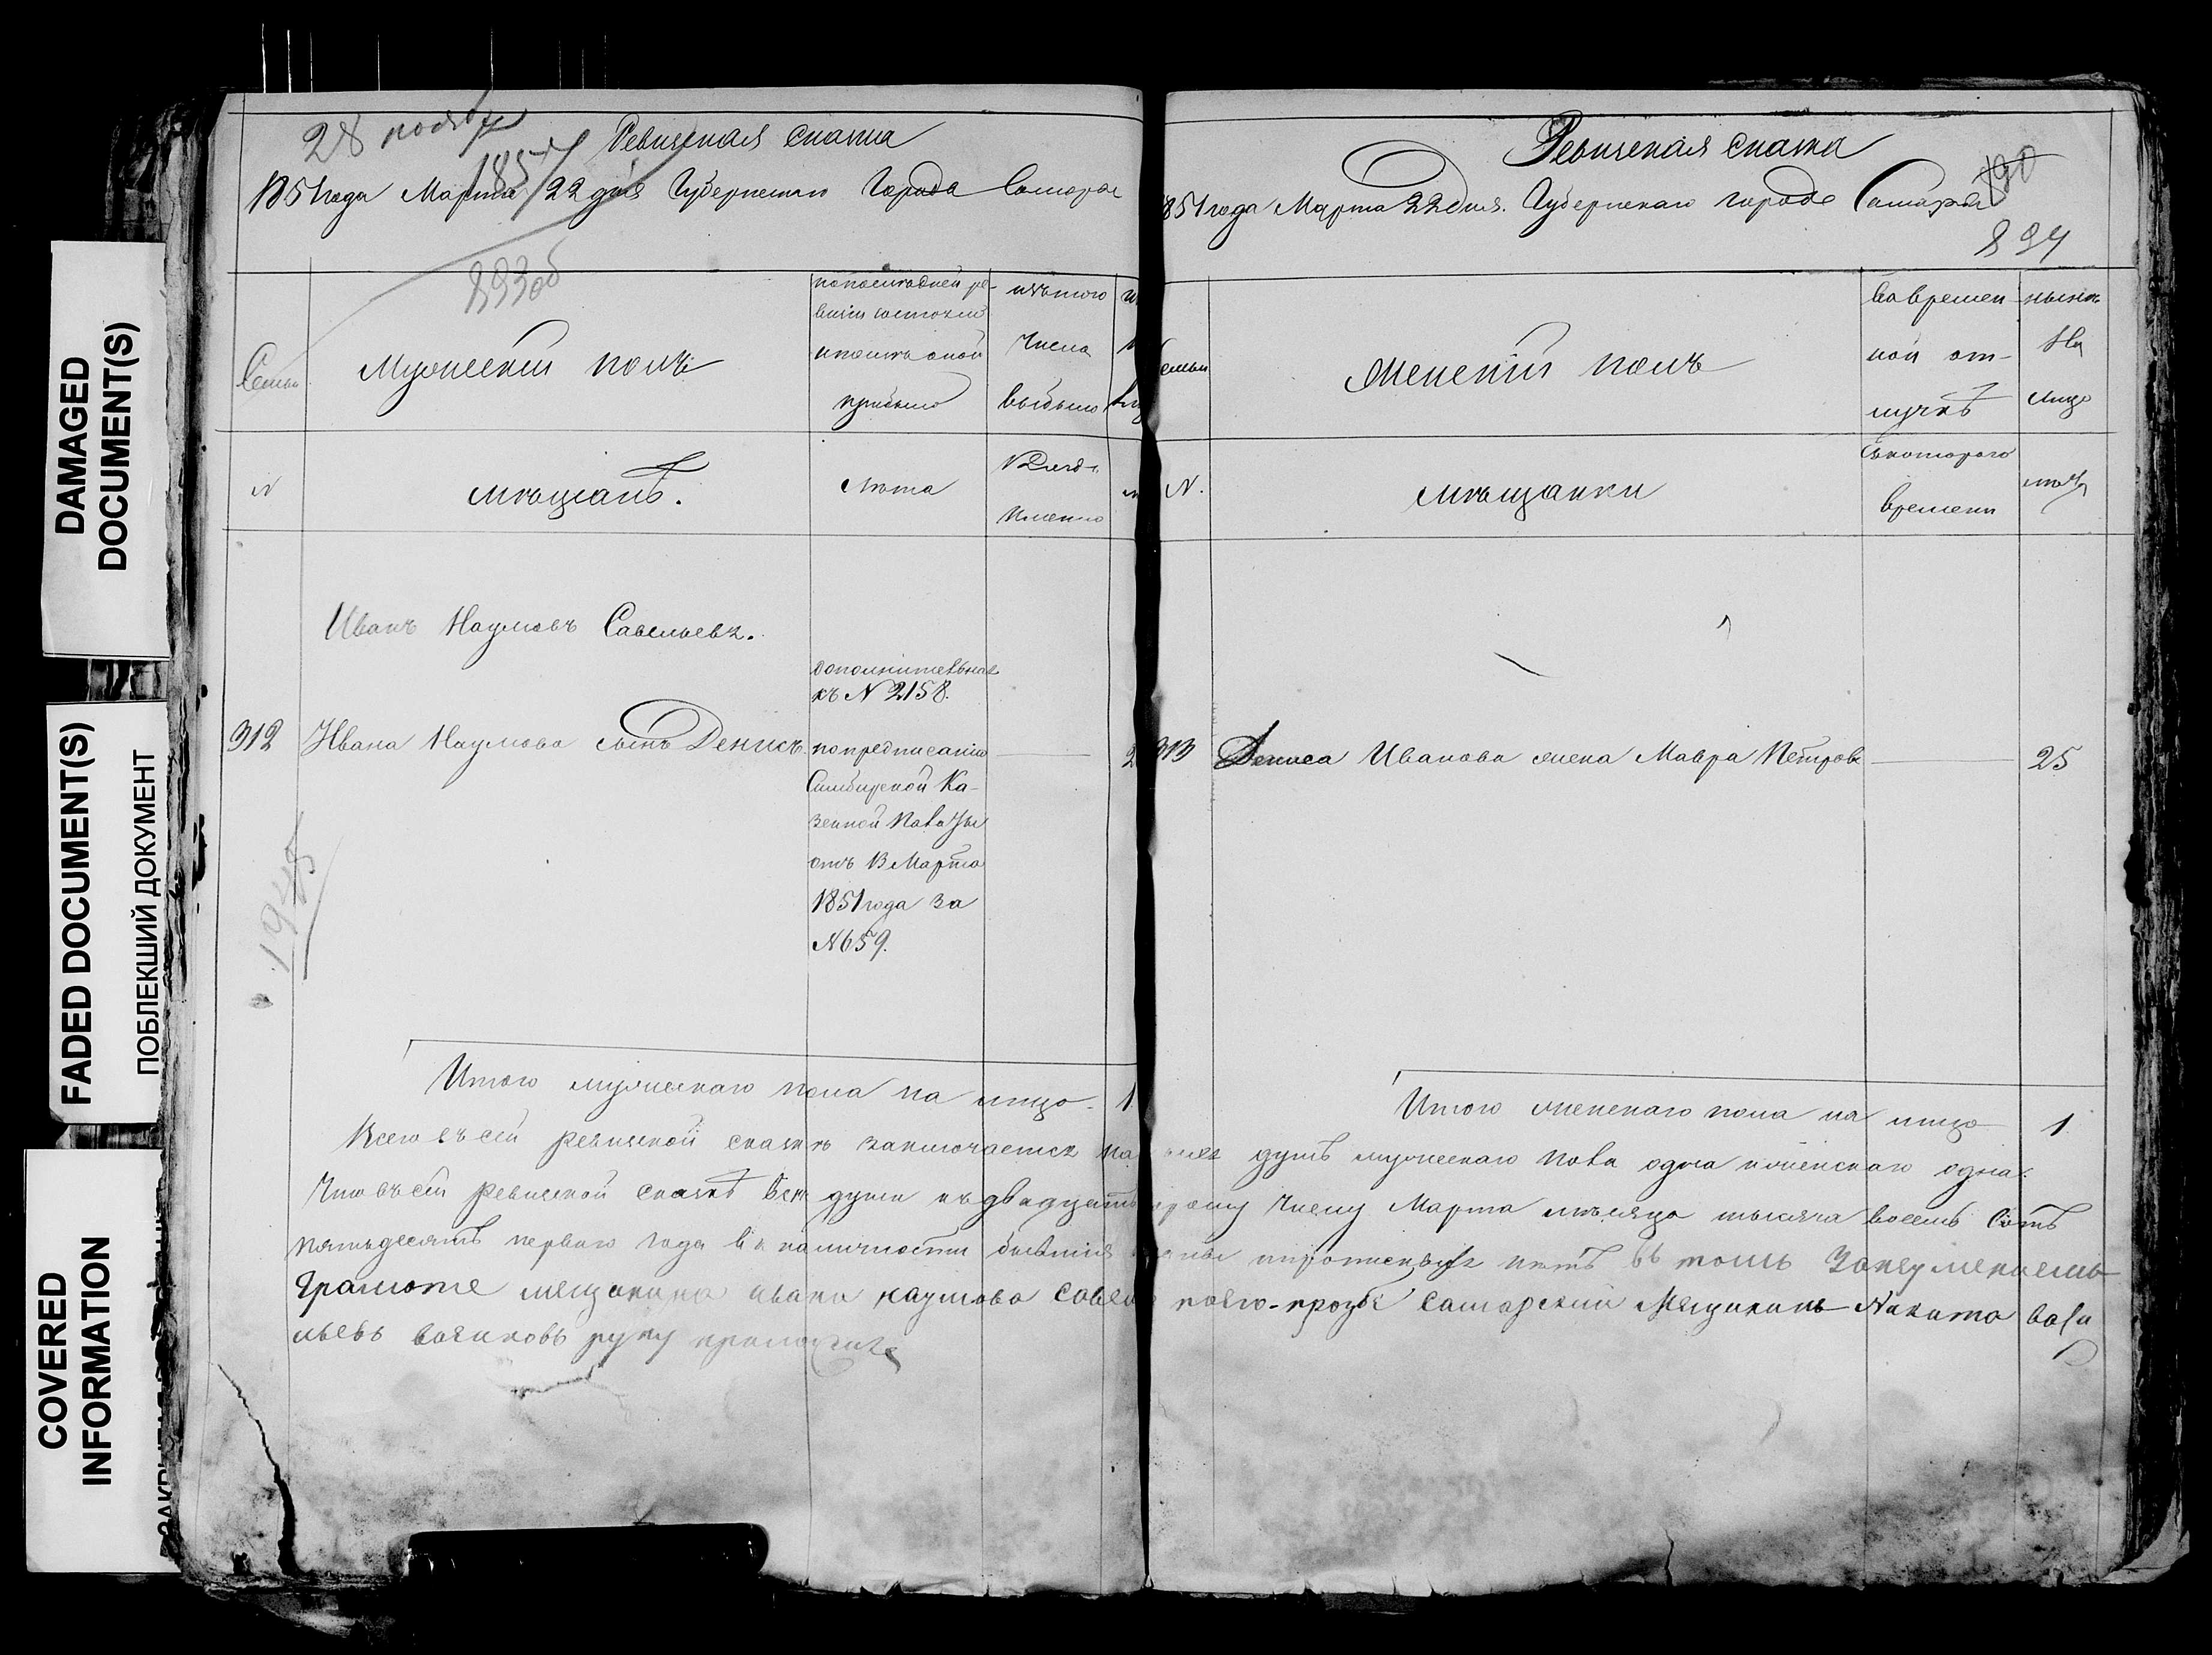 DAMAGED
DOCUMENT(S)
FADED DOCUMENT(S)
ПОБЛЕКШИЙ ДОКУМЕНТ
COVERED
INFORMATION
28 ноября
1857
Ревизская сказка
1851 года Марта 22 дня Губернскаго Города Самары
893об
Семьи
Мужеский полъ
по последней ре-
визіи состояло
и после оной
прибыло
изъ того
числа
выбыло
N
мѣщанъ.
Лѣта
Когда
именно
Иванъ Наумовъ Савельевъ.
дополнительная
къ N 2158.
312 Ивана Наумова сынъ Денисъ
по предписанію
Симбирской Ка-
зенной Палаты
отъ 13 Марта
1851 года за
N 659.
Итого мужескаго пола на лицо 1
Ревизская сказка
1851 года Марта 22 дня. Губернскаго города Самары
894
семьи
Женскій полъ
во времен-
ной от-
лучкѣ
нынѣ
На
лицо
N.
мѣщанки
съ котораго
времени
лѣта
313 Дениса Иванова жена Мавра Петрова 25
Итого женскаго пола на лицо 1
Всего въ сей ревизской сказкѣ заключается на лицо душъ мужескаго пола одна и женскаго одна.
Что въ сей ревизской сказкѣ все души къ двадцать второму числу Марта мѣсяца тысяча восемь сотъ
пятьдесятъ перваго года въ наличности бывшія показаны и прописныхъ нѣтъ въ томъ
грамоте мещанина ивана наумова савельева по его прозбе самарский Мещанинъ Никита
льевъ руку приложилъ